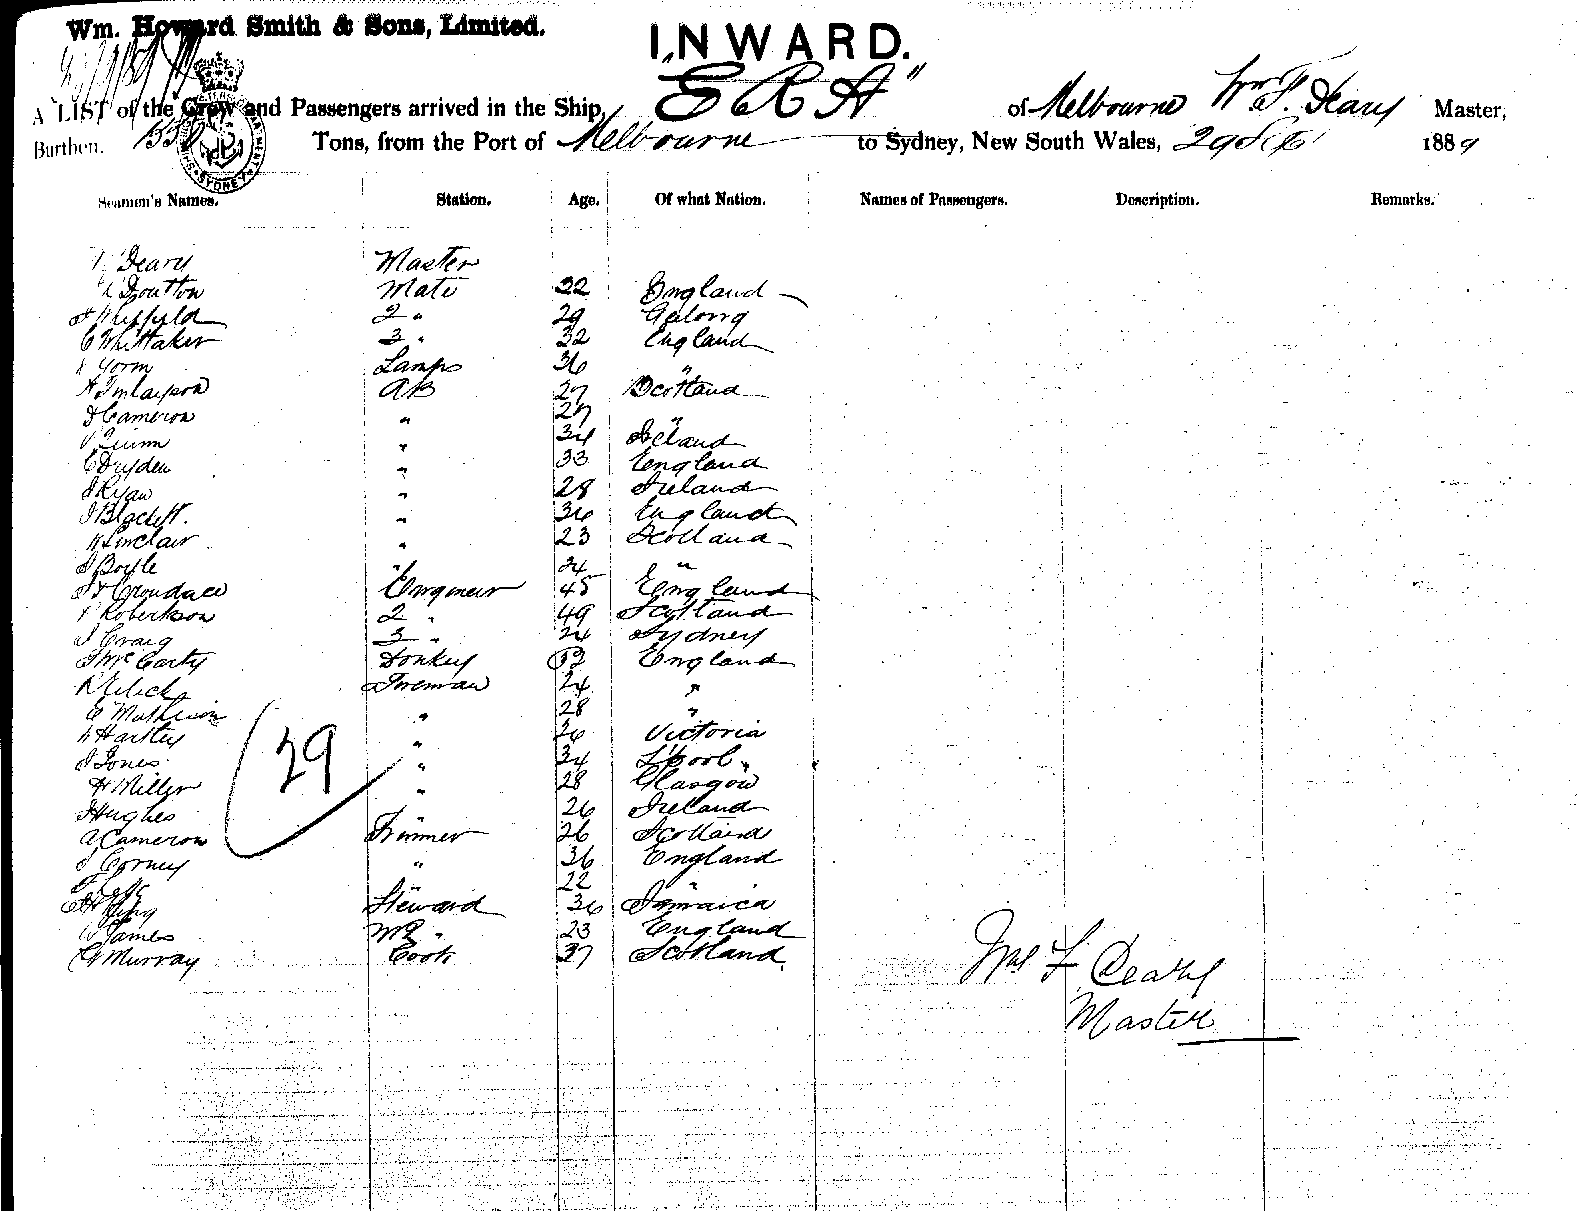 Wm. Howard Smith & Sons, Limited.
INWARD.
A LIST of the Crew and Passengers arrived in the Ship, "ERA" of Melbourne Wm F. Deary Master,
Burthen. Tons, from the Port of Melbourne to Sydney, New South Wales, 29 1889
SYDNEY
Seamen's Names. Station. Age. Of what Nation. Names of Passengers. Description. Remarks.
Deary Master
Doutton Mate 32 England
Sheffield 2 " 29 Geelong
C Whittaker 3 " 32 England
Yorm Lamps 36 "
A Finlayson AB 27 Scotland
D Cameron " 27 "
Quinn " 34 Ireland
C Dryden " 33 England
J Ryan " 28 Ireland
J Blackett. " 36 England
W Sinclair " 23 Scotland
J Boyle " 24 "
J H Croudace Engineer 45 England
Robertson 2 " 49 Scotland
J Craig 3 " 24 Sydney
J McCarty Donkey 32 England
Fireman 24 "
C Matheison " 28 "
W Hartley " 26 Victoria
J Jones " 34 L'pool
H Miller " 28 Glasgow
J Hughes " 26 Ireland
A Cameron Trimmer 26 Scotland
J Corney " 36 England
" 22 "
King Steward 36 Jamaica
W James 2 " 23 England
G Murray Cook 37 Scotland
29
Wm F Deary
Master